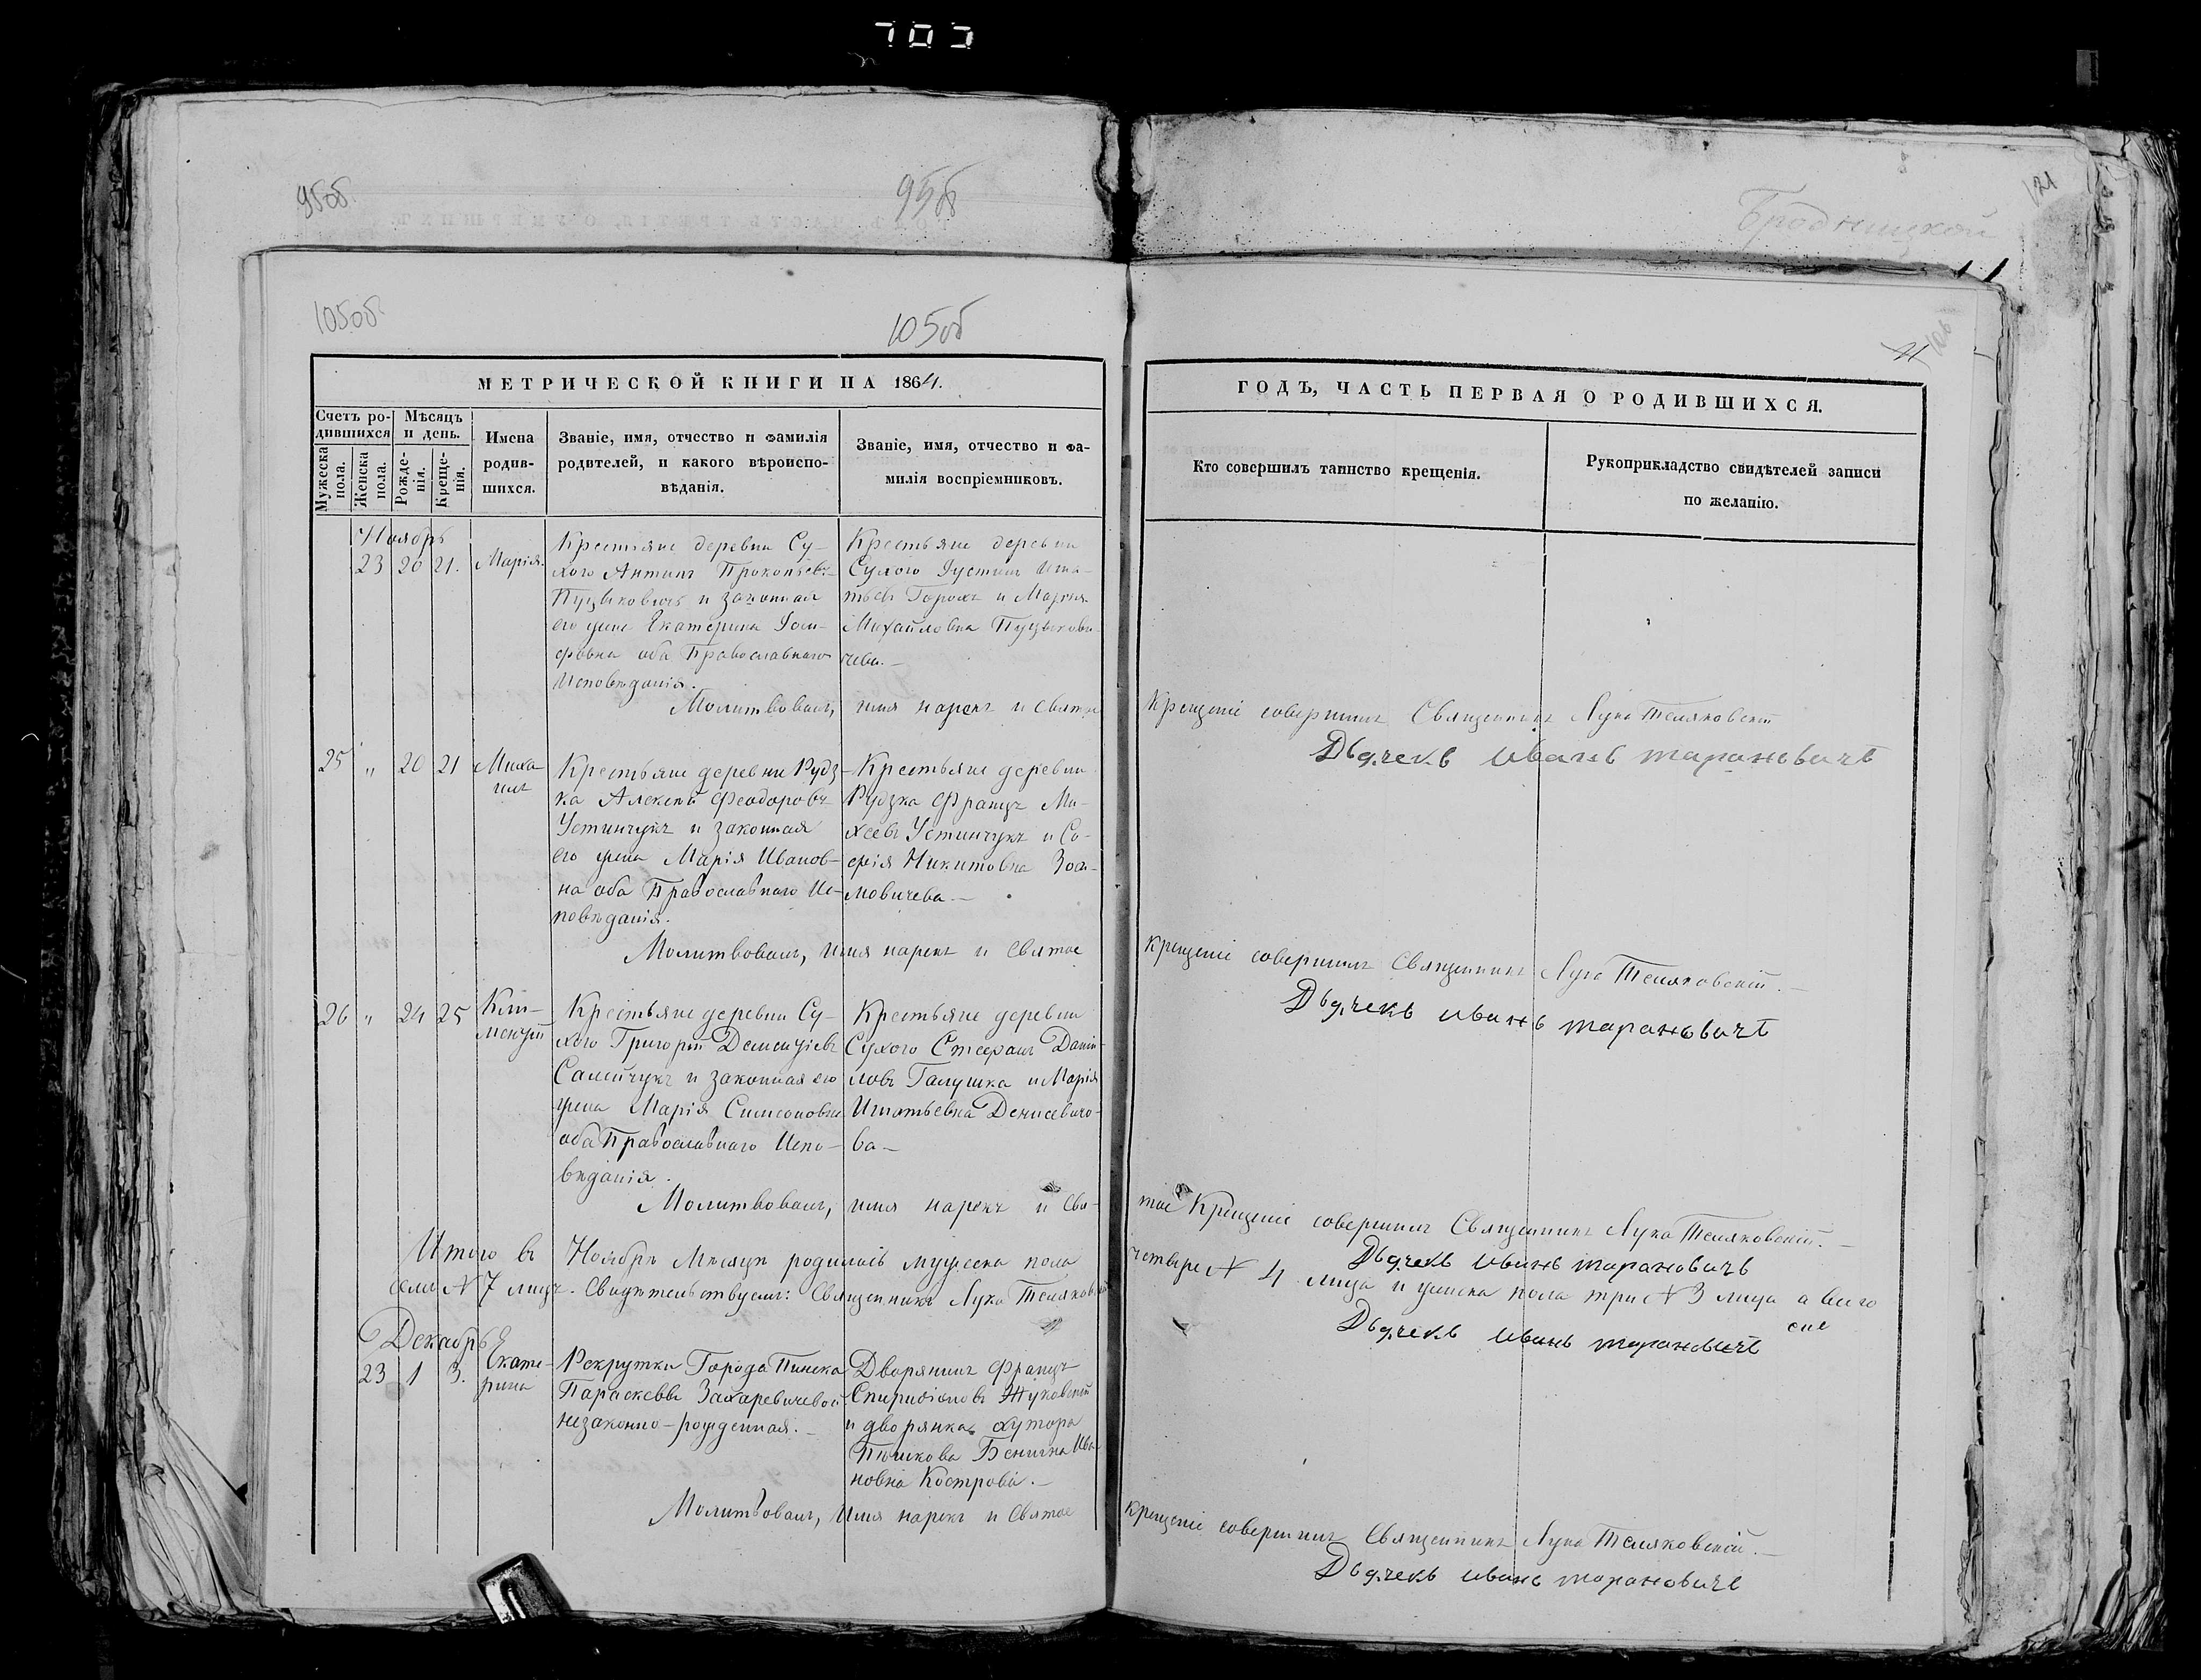 703
95об
95об
Бродницкой
121
105об
105об
106
МЕТРИЧЕСКОЙ КНИГИ НА 1864.
ГОДЪ, ЧАСТЬ ПЕРВАЯ О РОДИВШИХСЯ.
Счетъ ро-
дившихся
Мужеска
пола.
Женска
пола.
Мѣсяцъ
и день.
Рожде-
нія.
Креще-
нія.
Имена
родив-
шихся.
Званіе, имя, отчество и фамилія
родителей, и какого вѣроиспо-
вѣданія.
Званіе, имя, отчество и фа-
милія воспріемниковъ.
Кто совершилъ таинство крещенія.
Рукоприкладство свидѣтелей записи
по желанію.
Ноябрь
23 20 21. Марія.
Крестьяне деревни Су-
хого Антинъ Прокопьевъ
Пуцыковичъ и законная
его жена Екатерина Іоси-
фовна оба Православнаго
Исповѣданія.
Крестьяне деревни
Сухого Іустинъ Игна-
тьевъ Горохъ и Марія
Михайловна Пуцыкови-
чева.—
Молитвовалъ, имя нарекъ и Святое
Крещеніе совершилъ Священникъ Лука Теляковскій
Дьячекъ иванъ тарановичъ
25 „ 20 21 Миха-
илъ
Крестьяне деревни Рудз-
ка Алексѣй Феодоровъ
Устинчукъ и законная
его жена Марія Иванов-
на оба Православнаго Ис-
повѣданія.
Крестьяне деревни
Рудзка Францъ Ми-
хеевъ Устинчукъ и Со-
фія Никитовна
мовичева.—
Молитвовалъ, имя нарекъ и Святое
крещеніе совершилъ Священникъ Лука Теляковскій.—
Дьячекъ иванъ тарановичъ
26 „ 24 25 Кли-
ментій
Крестьяне деревни Су-
хого Григорій Дементіевъ
Самойчукъ и законная его
жена Марія Симеоновна
оба Православнаго Испо-
вѣданія.
Крестьяне деревни
Сухого Стефанъ Даніи-
ловъ Галушка и Марія
Игнатьевна Денисевичо-
ва—
Молитвовалъ, имя нарекъ и Свя-
тое Крещеніе совершилъ Священникъ Лука Теляковскій.—
Дьячекъ иванъ тарановичъ
Итого въ Ноябрѣ Мѣсяцѣ родилось мужеска пола
четыре № 4 лица и женска пола три № 3 лица а всего
семь № 7 лицъ. Свидѣтельствуемъ: Священникъ Лука Теляковскій
Дьячекъ иванъ тарановичъ
Декабрь
23 1 3. Екате-
рина
Рекрутки Города Пинска
Параскевы Захаревичевой
незаконно-рожденная.—
Дворянинъ Францъ
Спиридоновъ Жуковскій
и дворянка хутора
Пѣшкова Бенигна Ива-
новна Кострова.—
Молитвовалъ, Имя нарекъ и Святое
крещеніе совершилъ Священникъ Лука Теляковскій.—
Дьячекъ иванъ тарановичъ